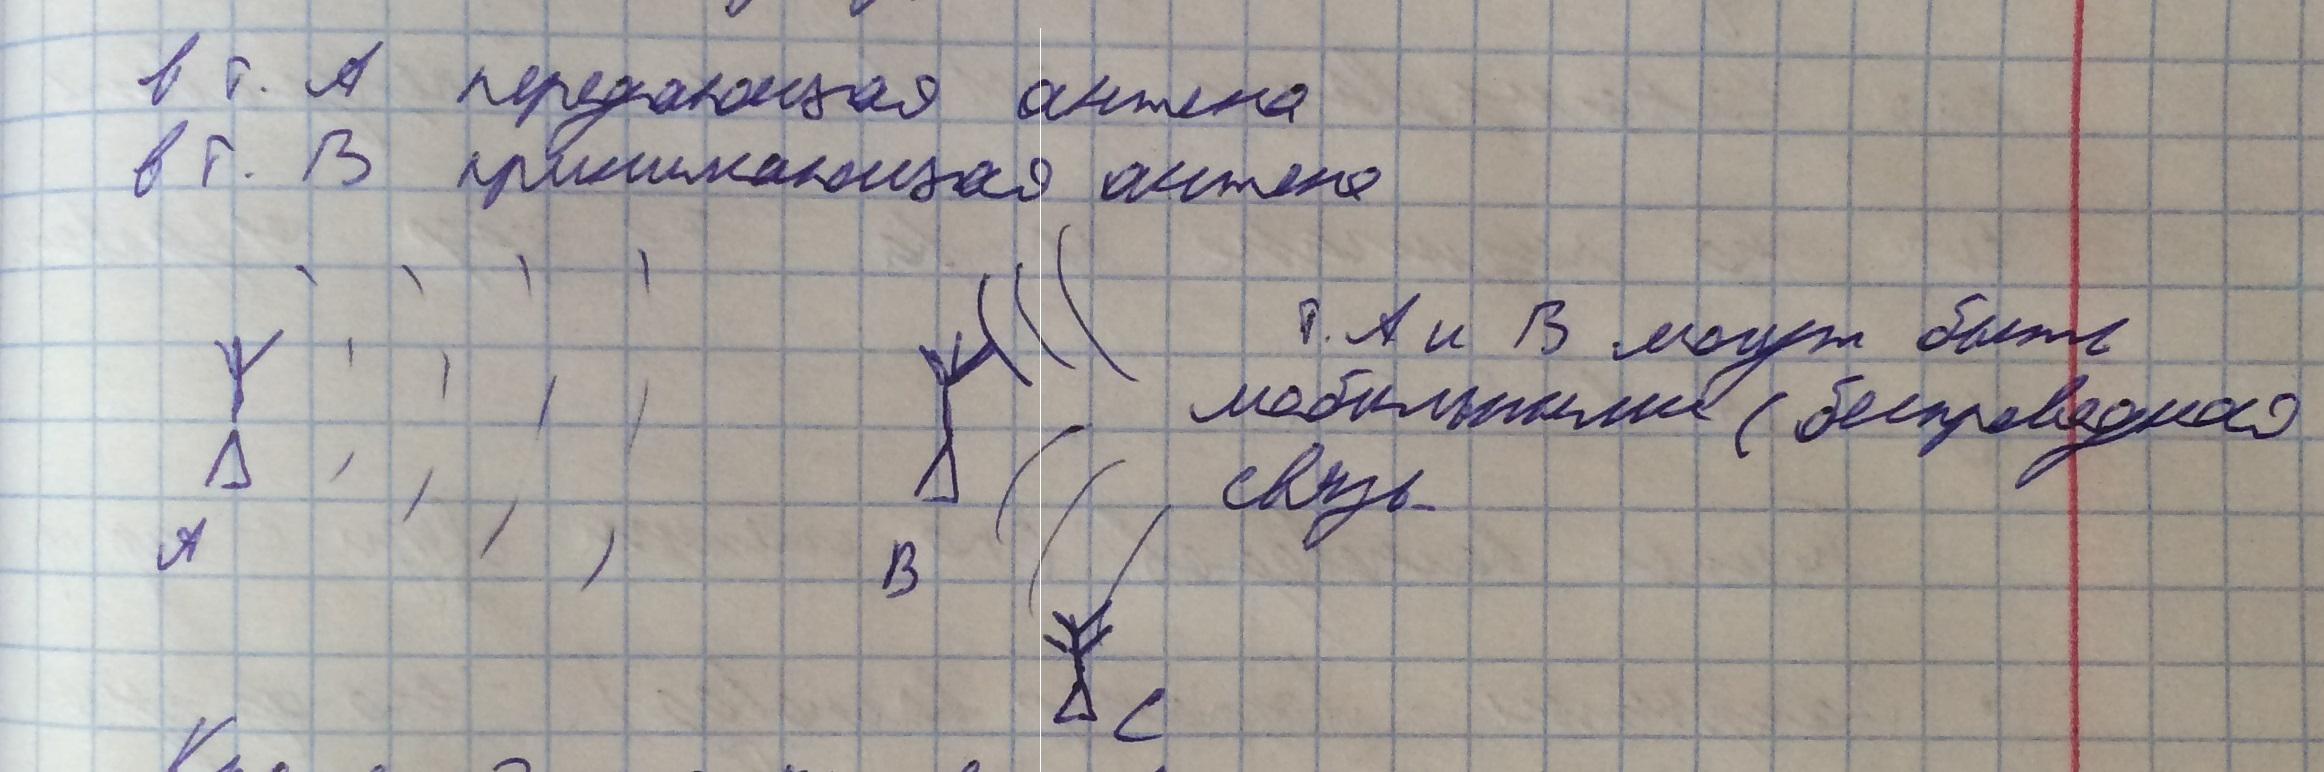 в т. А передающая антена
в т. В принимающая антена
т. А и В могут быть
мобильными (беспроводная
связь
А
В
С